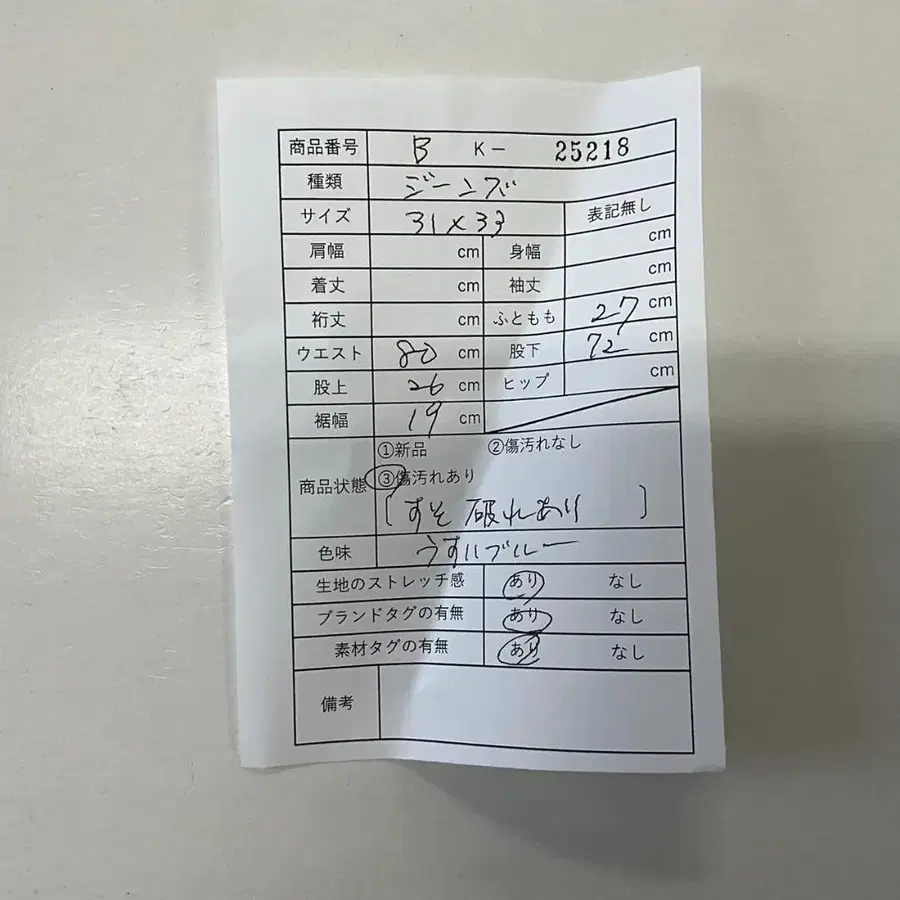 商品番号 B K- 25218
種類 ジーンズ
サイズ 31×33 表記無し
肩幅 cm 身幅 cm
着丈 cm 袖丈 cm
裄丈 cm ふともも 27 cm
ウエスト 80 cm 股下 72 cm
股上 26 cm ヒップ cm
裾幅 19 cm
①新品 ②傷汚れなし
商品状態 ③傷汚れあり
[すそ 破れあり]
色味 うすいブルー
生地のストレッチ感 あり なし
ブランドタグの有無 あり なし
素材タグの有無 あり なし
備考